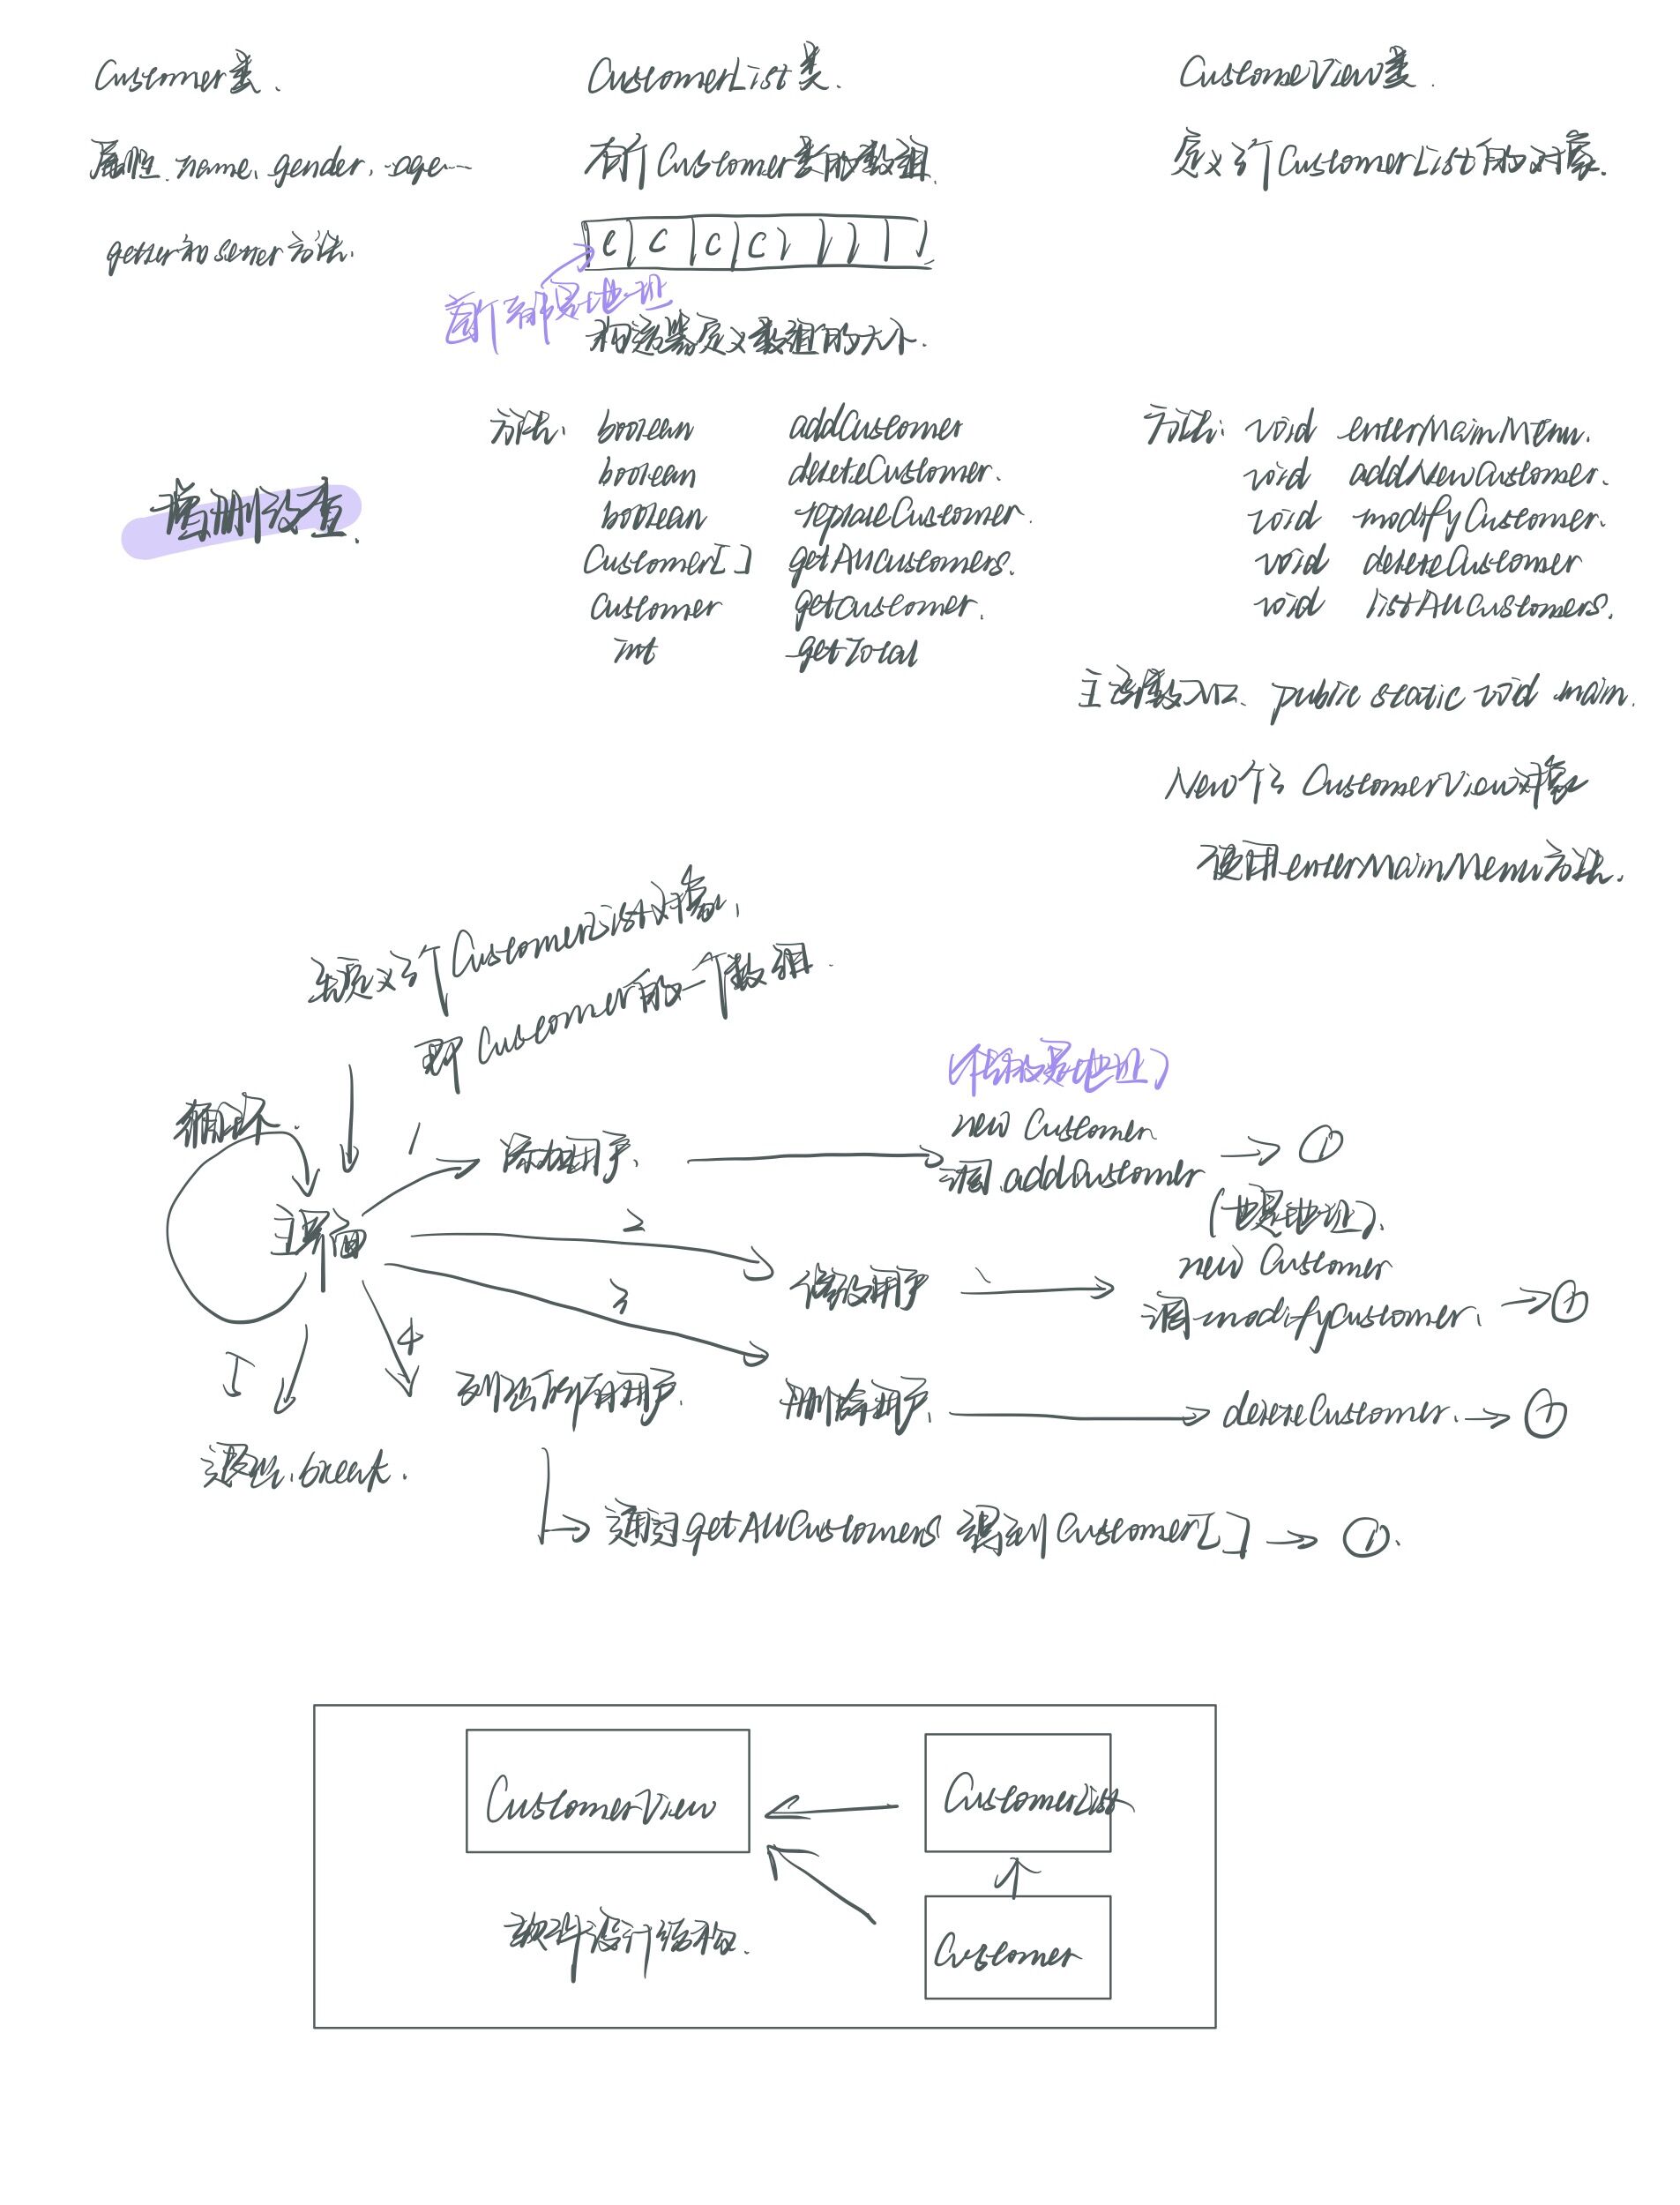 Customer类.
属性. name, gender, age—
getter和setter方法.
增删改查.
CustomerList类.
有个Customer类的数组.
C C C C
每个都是地址
构造器定义数组的大小.
方法: boolean addCustomer
boolean deleteCustomer.
boolean replaceCustomer.
Customer[] getAllCustomers.
Customer getCustomer.
int getTotal
CustomeView类.
定义了个CustomerList的对象.
方法: void enterMainMenu.
void addNewCustomer.
void modifyCustomer.
void deleteCustomer
void listAllCustomers.
主函数入口. public static void main.
New个了 CustomerView对象
使用enterMainMenu方法.
定义了个CustomerList对象,
即Customer的一个数组.
循环.
主界面
1 添加用户.
(传的是地址)
new Customer
调.addCustomer → ①
2 修改用户
(也是地址).
new Customer
调modifyCustomer. → ①
3 删除用户. → deleteCustomer. → ①
4 列出所有用户.
通过getAllCustomers 得到Customer[] → ①.
5 退出, break.
CustomerView
CustomerList
Customer
软件设计结构.